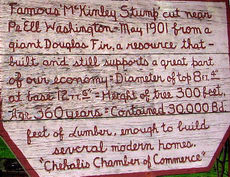 Famous "McKinley Stump" cut near
Pe Ell Washington - May 1901 from a
giant Douglas Fir, a resource that -
built and still supports a great part
of our economy = Diameter of top 8 ft
at base = Height of tree 300 feet,
Age 360 years = Contained 90,000 Bd.
feet of Lumber, enough to build
several modern homes.
"Chehalis Chamber of Commerce"